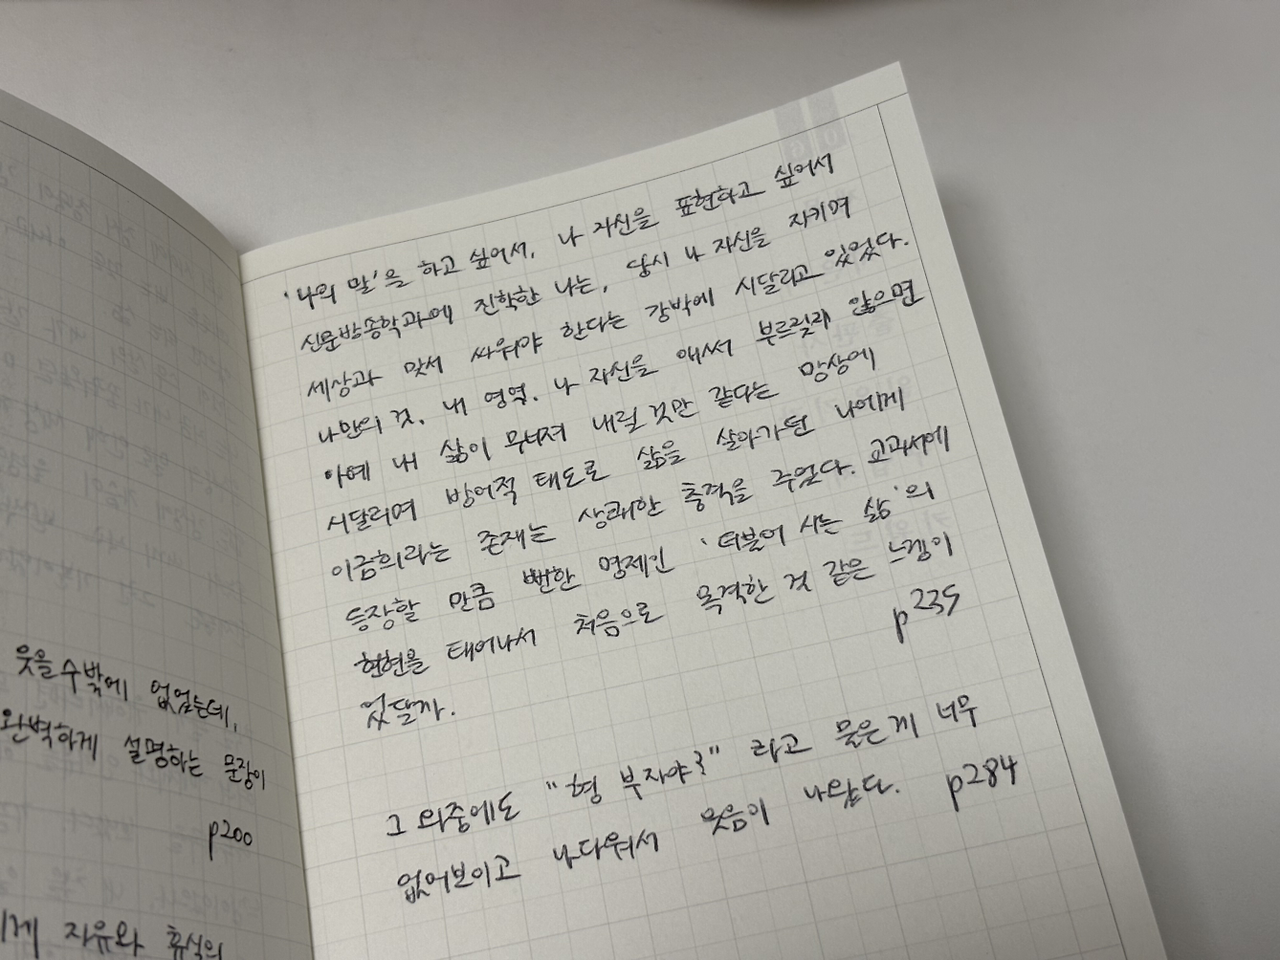 웃을 수밖에 없었는데,
완벽하게 설명하는 문장이
p200
게 자유와 휴식의
'나의 말'을 하고 싶어서, 나 자신을 표현하고 싶어서
신문방송학과에 진학한 나는, 당시 나 자신을 지키며
세상과 맞서 싸워야 한다는 강박에 시달리고 있었다.
나만의 것, 내 영역, 나 자신을 애써 부르짖지 않으면
아예 내 삶이 무너져 내릴 것만 같다는 망상에
시달리며 방어적 태도로 삶을 살아가던 나에게
이금희라는 존재는 상쾌한 충격을 주었다. 교과서에
등장할 만큼 뻔한 명제인 '더불어 사는 삶'의
현현을 태어나서 처음으로 목격한 것 같은 느낌이
었달까. p235
그 와중에도 "형 부자야?" 라고 물은 게 너무
없어보이고 나다워서 웃음이 나왔다. p284